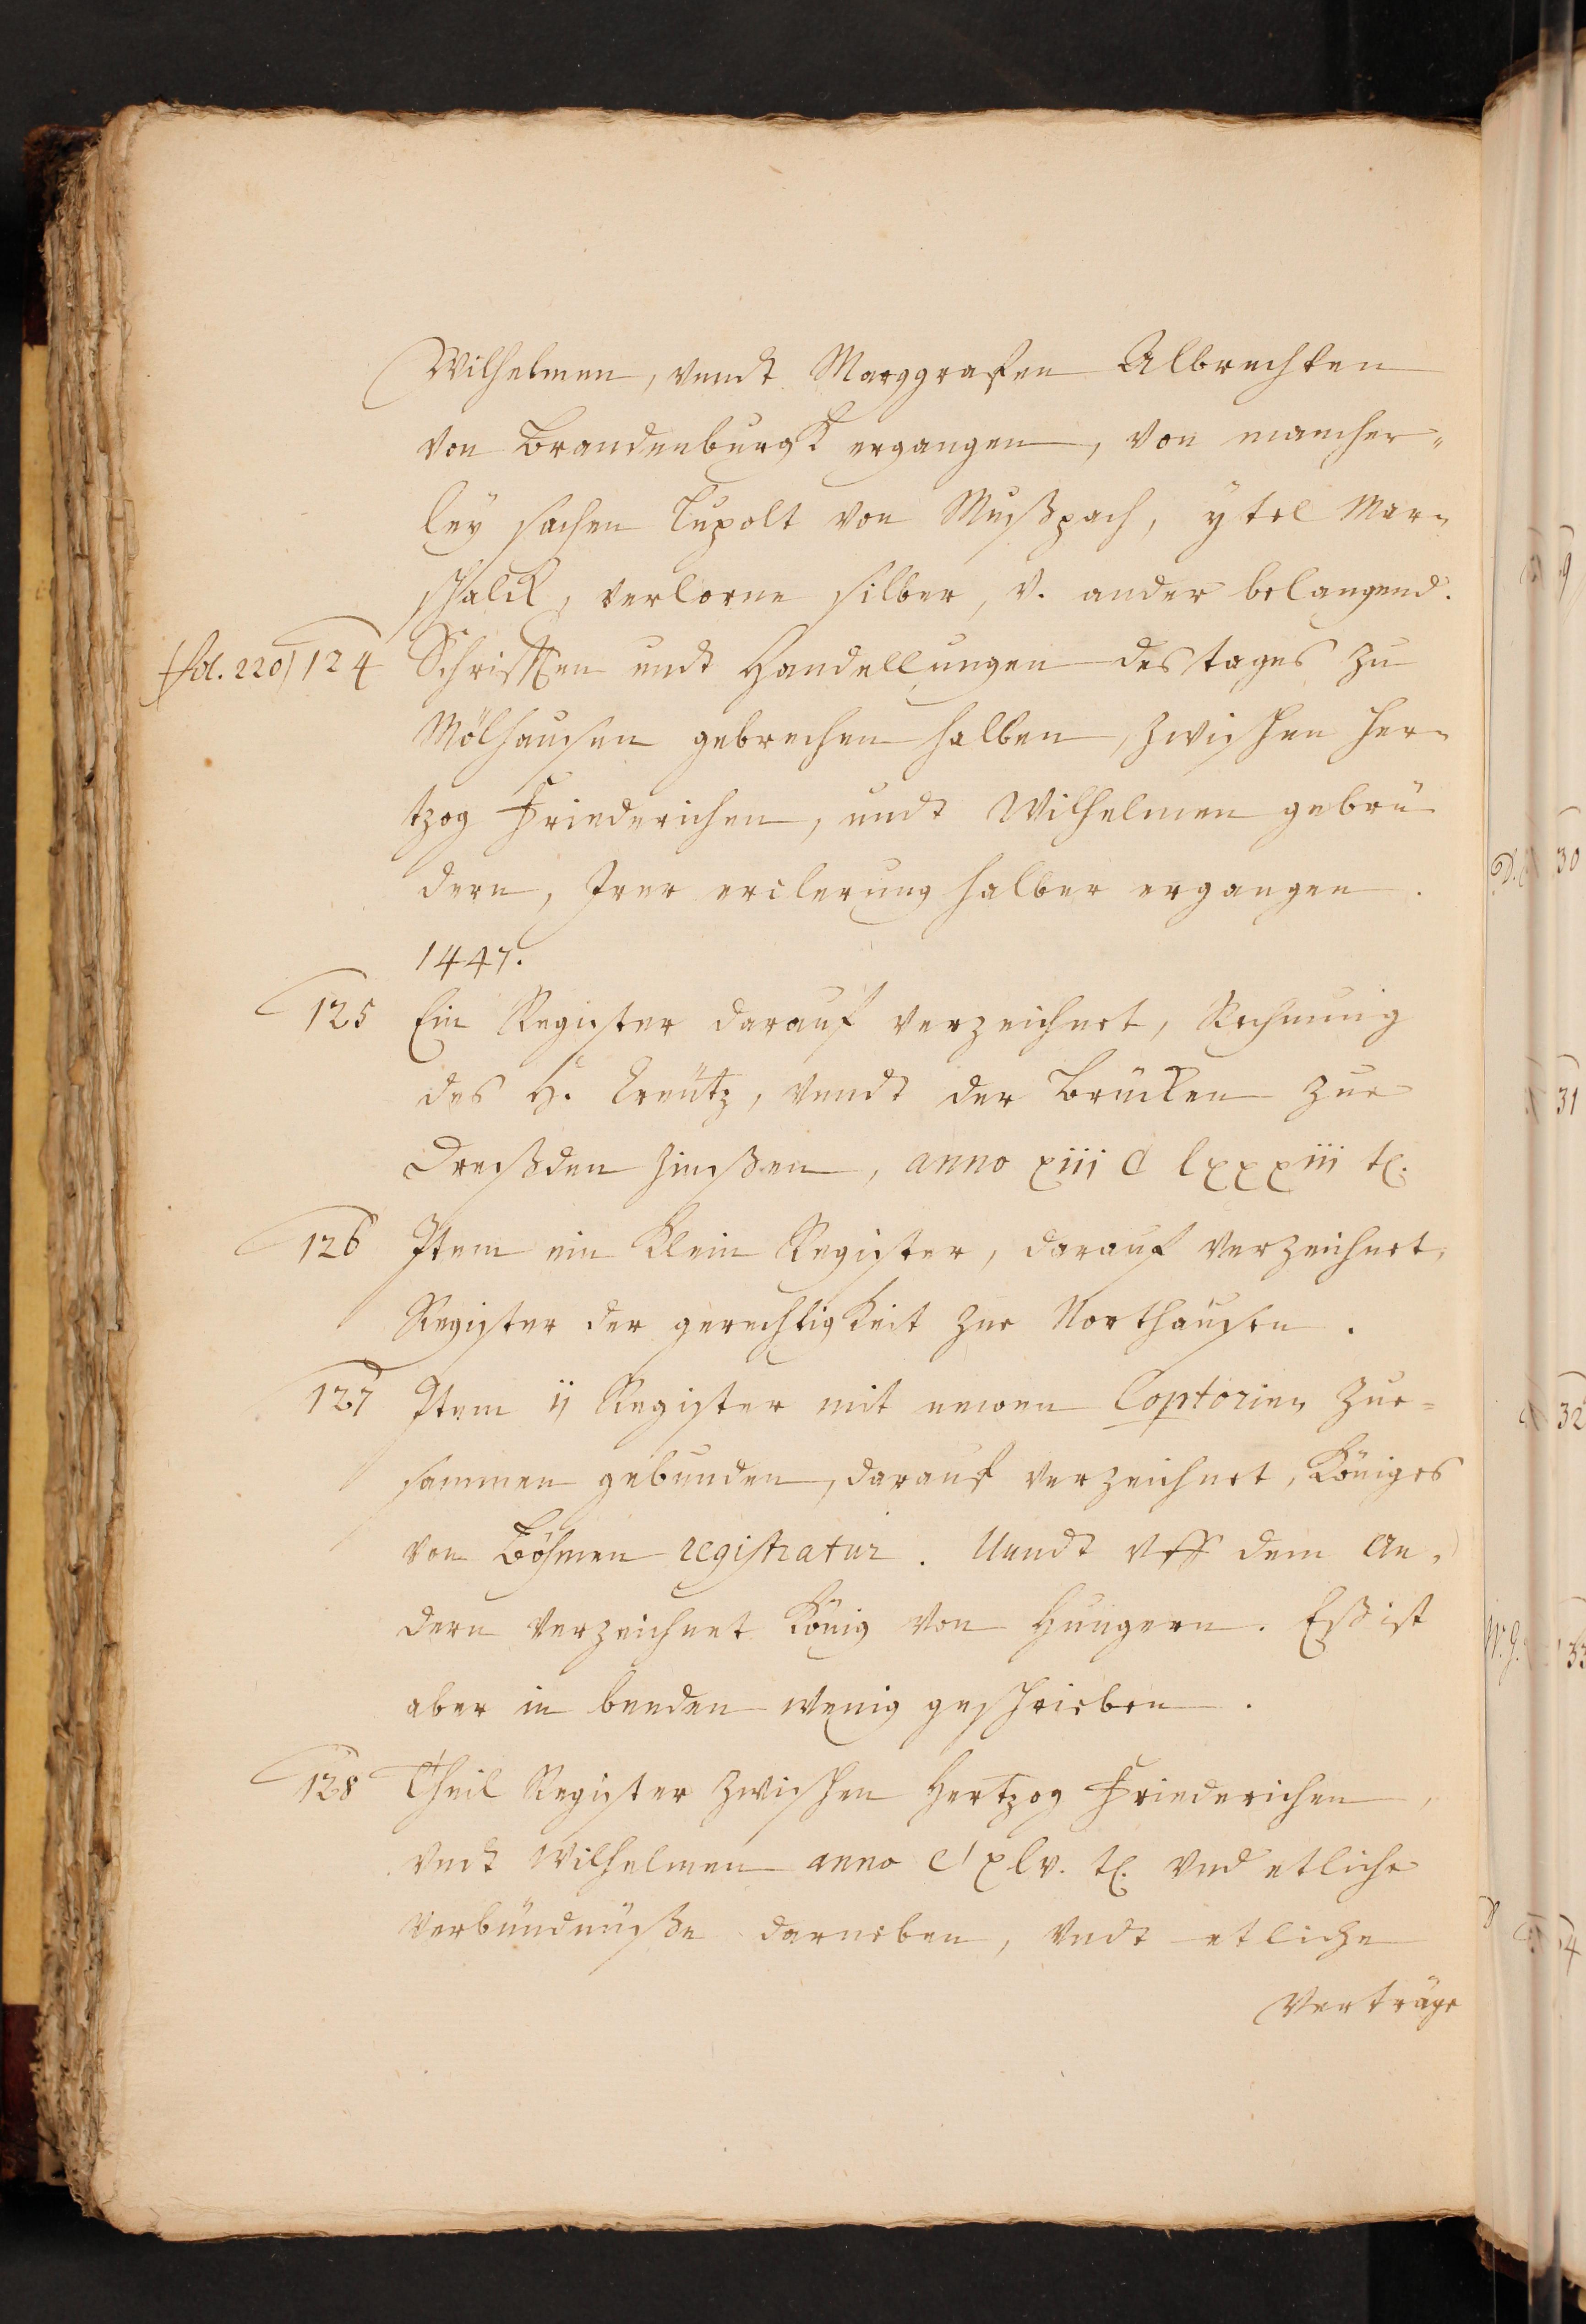 Wilhelmen, vndt Marggrafen Albrechten
von Brandenburgk ergangen, von mancher-
ley sachen Lupolt von Mußpach, ytel Mar-
schalck, verlorne silber, v. ander belangend.
(fol. 220) 124 Schrifften undt Handellungen des tages zu
Mölhausen gebrechen halben, zwischen Her-
tzog Friederichen, undt Wilhelmen gebrü
dern, Irer erclerung halber ergangen.
1447.
125 Ein Register darauf verzeichnet, Rechnung
des H. Creütz, vndt der Brücken zue
Dreßden Zinßen, anno xiii C lxxxiii tc.
126 Item ein klein Register, darauf verzeichnet,
Register der gerechtigkeit zue Northausen.
127 Item ij Register mit newen Coptorien zue-
sammen gebunden, darauf verzeichnet, Königes
von Böhmen registratur. Unndt vff dem An-
dern verzeichnet König von Hungern. Eß ist
aber in beeden wenig geschrieben.
128 Theil Register zwischen Hertzog Friederichen,
vndt Wilhelmen anno xlv. tc. vnd etliche
verbündnüße darneben, vndt etliche
Verträge